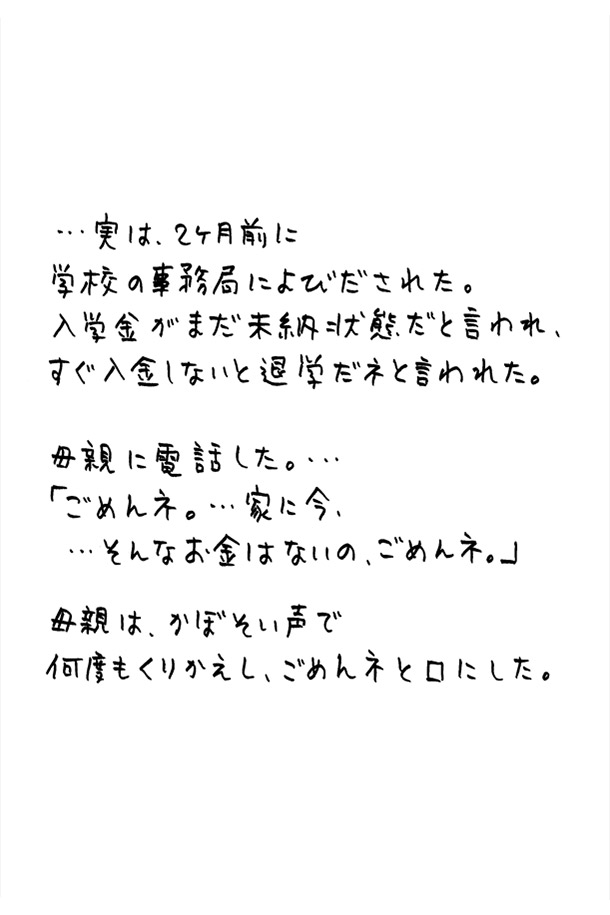 …実は、2ヶ月前に
学校の事務局によびだされた。
入学金がまだ未納状態だと言われ、
すぐ入金しないと退学だネと言われた。
母親に電話した。…
「ごめんネ。…家に今、
…そんなお金はないの、ごめんネ。」
母親は、かぼそい声で
何度もくりかえし、ごめんネと口にした。